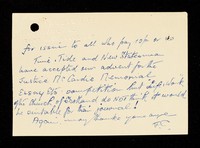 for issuing to all who pay 10/- or so
Time & Tide and New Statesman
have accepted our advent for the
Justice McCardie Memorial
Essay competition but
Church of Scotland do NOT think it would
be suitable for their journal!
Again many thanks yours